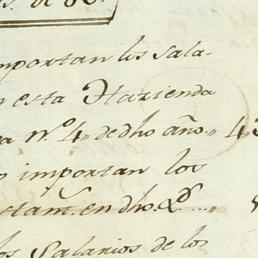 importan los Sala-
n esta Hazienda
a nº. 4,, de dho año,, 4
importan los
en dho
los Salarios de los